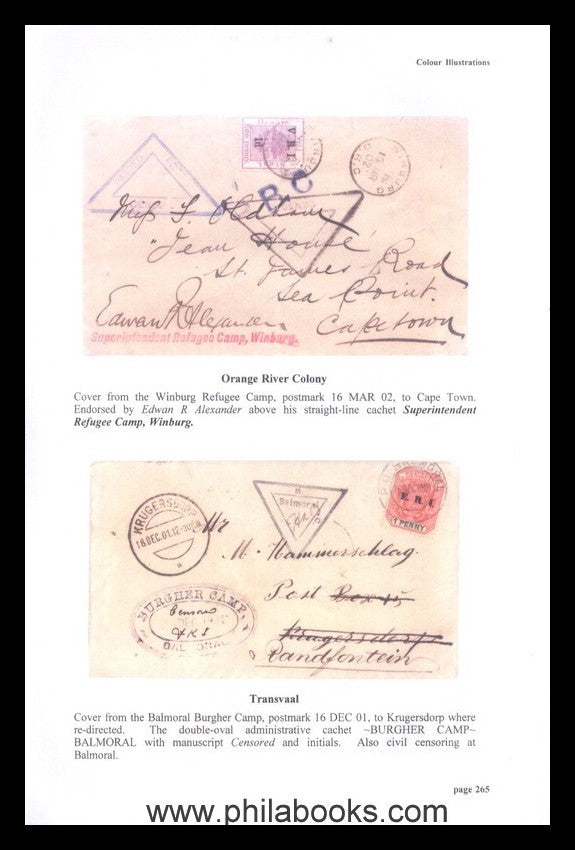 Colour Illustrations
V.R.I.
1d
B C
Miss
"Jean House"
St. James Road
Sea Point.
Capetown
Edwan R Alexander
Superintendent Refugee Camp, Winburg.
Orange River Colony
Cover from the Winburg Refugee Camp, postmark 16 MAR 02, to Cape Town.
Endorsed by Edwan R Alexander above his straight-line cachet Superintendent
Refugee Camp, Winburg.
E.R.I.
1 PENNY
B
Balmoral
KRUGERSDORP
18.DEC.01.12
Mr
M. Hammerschlag.
Post Box 15
Krugersdorp
Randfontein
BURGHER CAMP
Censored
BALMORAL
Transvaal
Cover from the Balmoral Burgher Camp, postmark 16 DEC 01, to Krugersdorp where
re-directed. The double-oval administrative cachet ~BURGHER CAMP~
BALMORAL with manuscript Censored and initials. Also civil censoring at
Balmoral.
page 265
www.philabooks.com